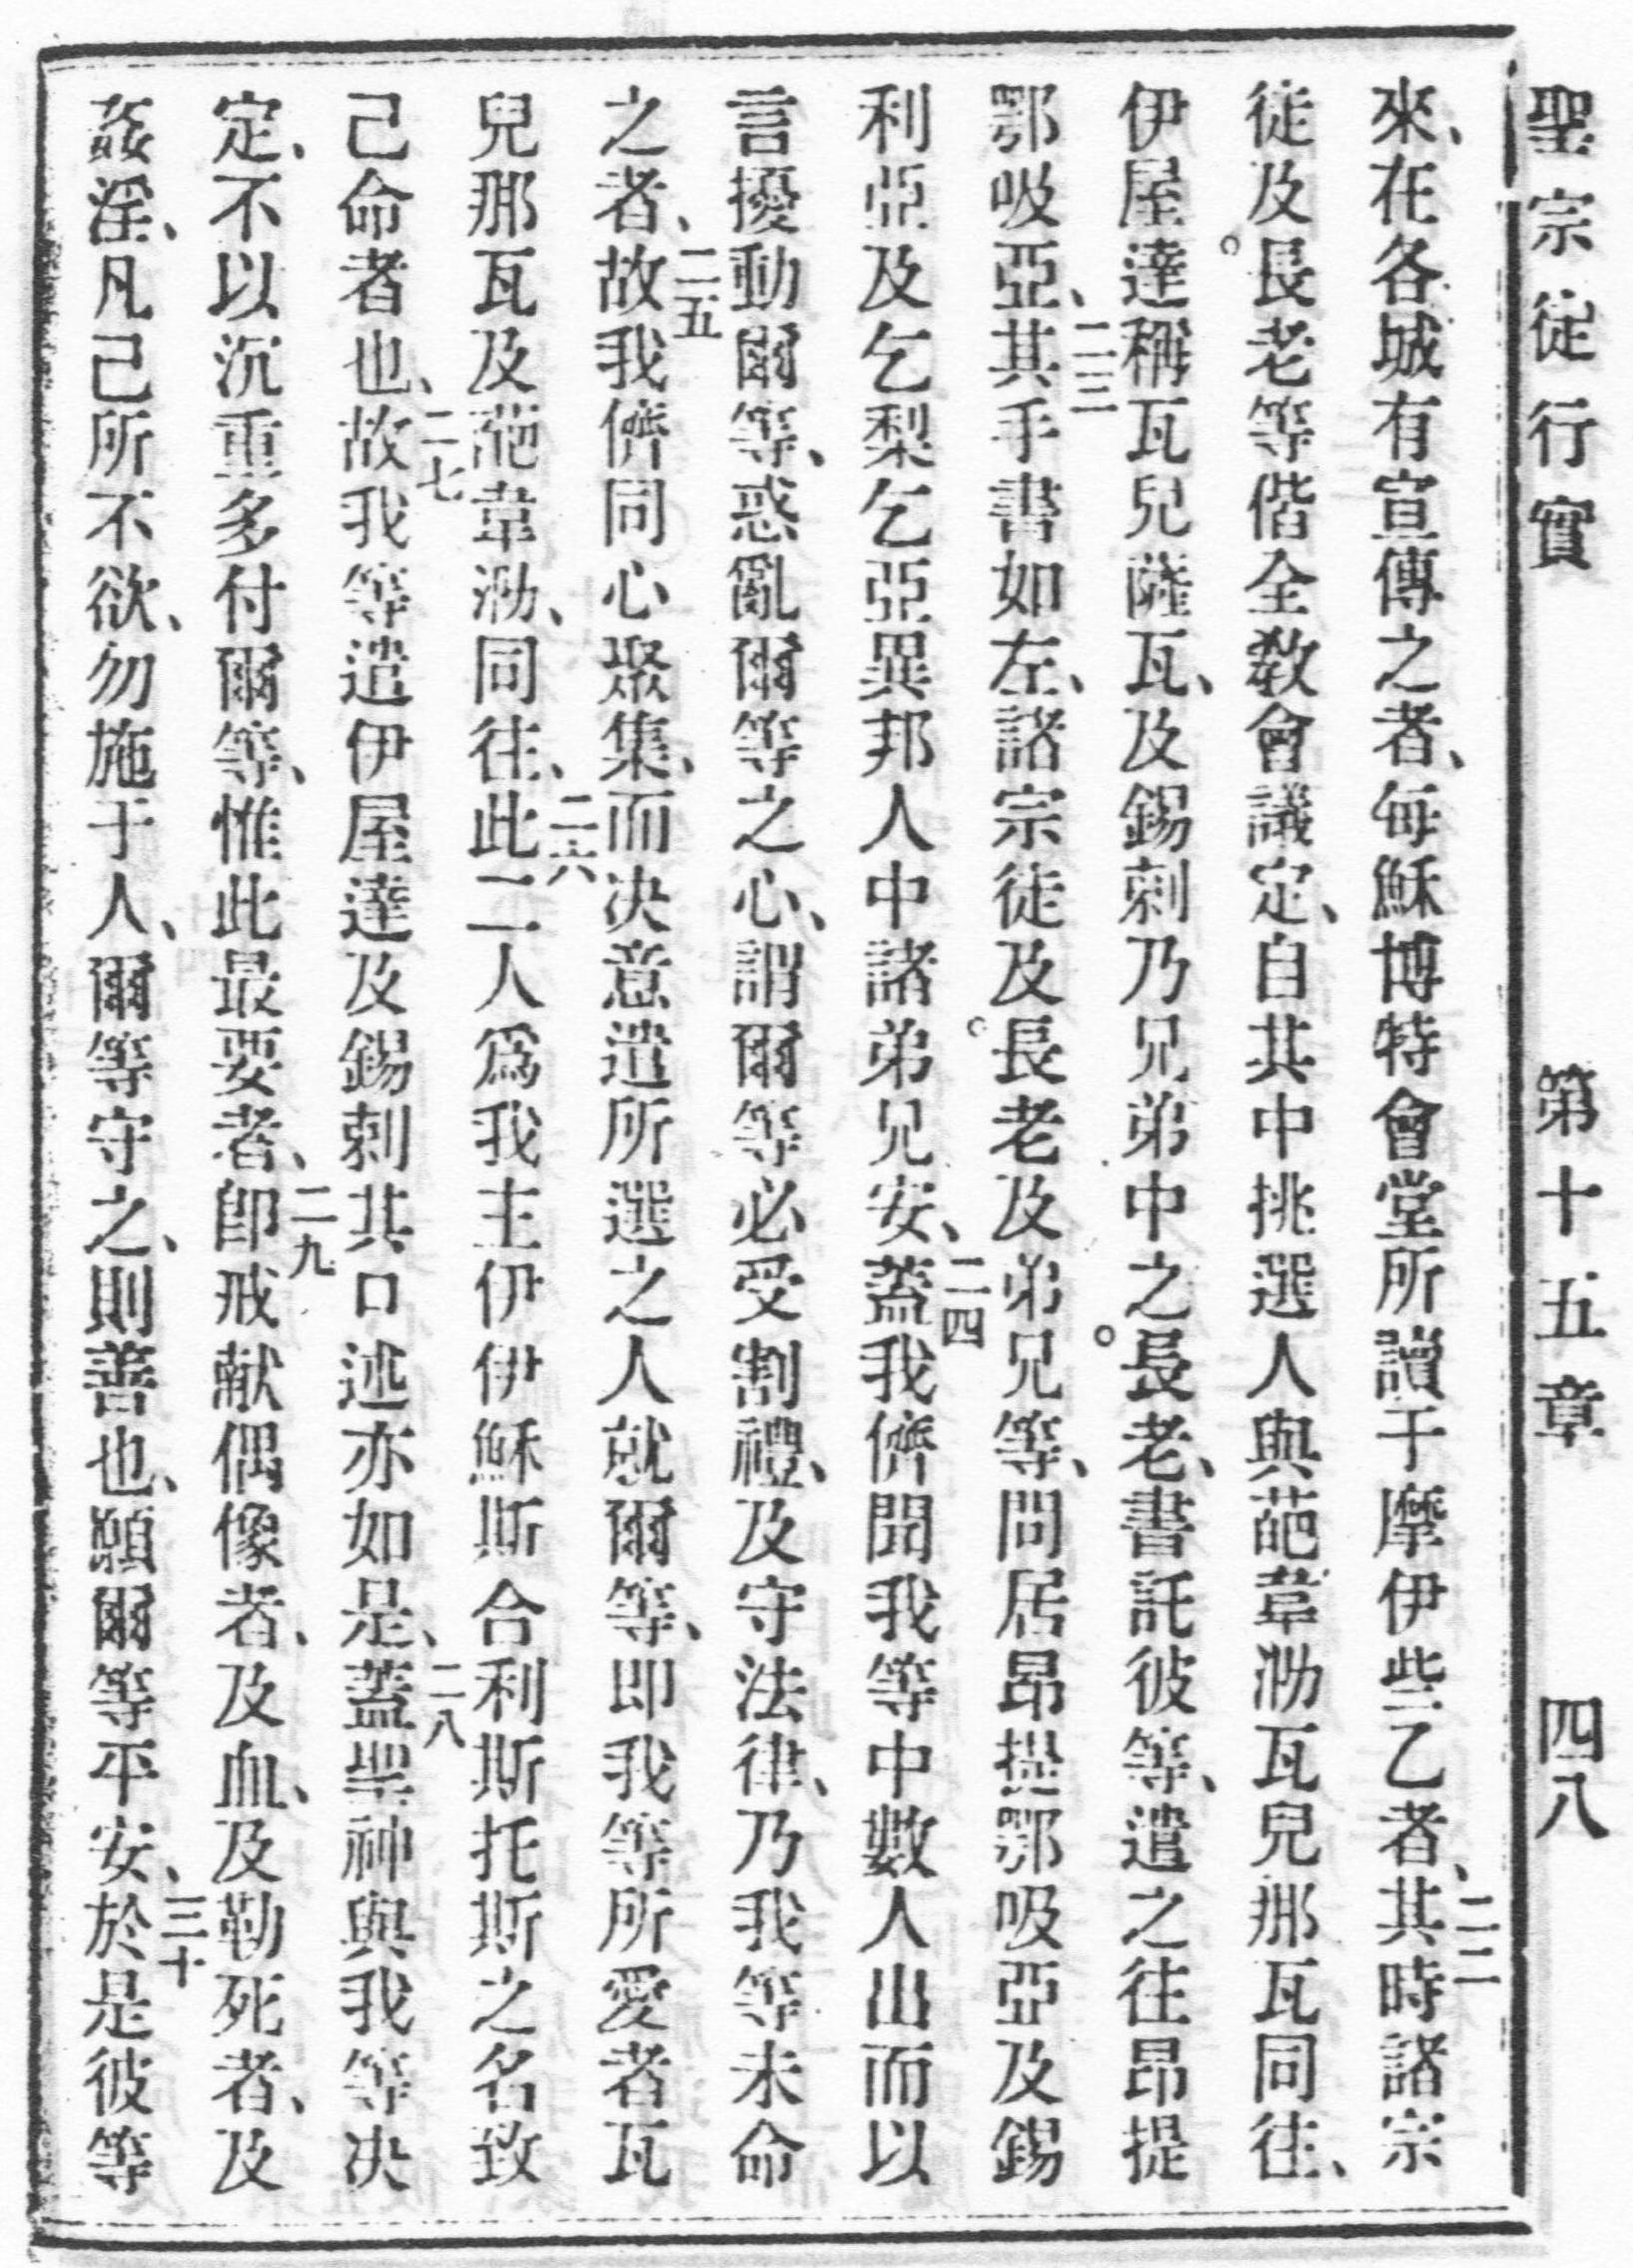 聖宗徒行實 第十五章 四八
來、在各城有宣傳之者、每穌博特會堂所讀于摩伊些乙者、二二其時諸宗
徒及長老等偕全教會議定、自其中挑選人與葩韋泐瓦兒那瓦同往、
伊屋達稱瓦兒薩瓦、及錫剌乃兄弟中之長老、書託彼等、遣之往昂提
鄂吸亞、二三其手書如左、諸宗徒及長老及弟兄等、問居昂提鄂吸亞及錫
利亞及乞梨乞亞異邦人中諸弟兄安、二四蓋我儕聞我等中數人出而以
言擾動爾等、惑亂爾等之心、謂爾等必受割禮、及守法律、乃我等未命
之者、二五故我儕同心聚集、而决意遣所選之人就爾等、即我等所愛者瓦
兒那瓦及葩韋泐、同往、二六此二人爲我主伊伊穌斯合利斯托斯之名致
己命者也、二七故我等遣伊屋達及錫剌其口述亦如是、二八蓋聖神與我等决
定、不以沉重多付爾等、惟此最要者、二九卽戒獻偶像者、及血、及勒死者、及
姦淫、凡己所不欲、勿施于人、爾等守之、則善也、願爾等平安、三十於是彼等